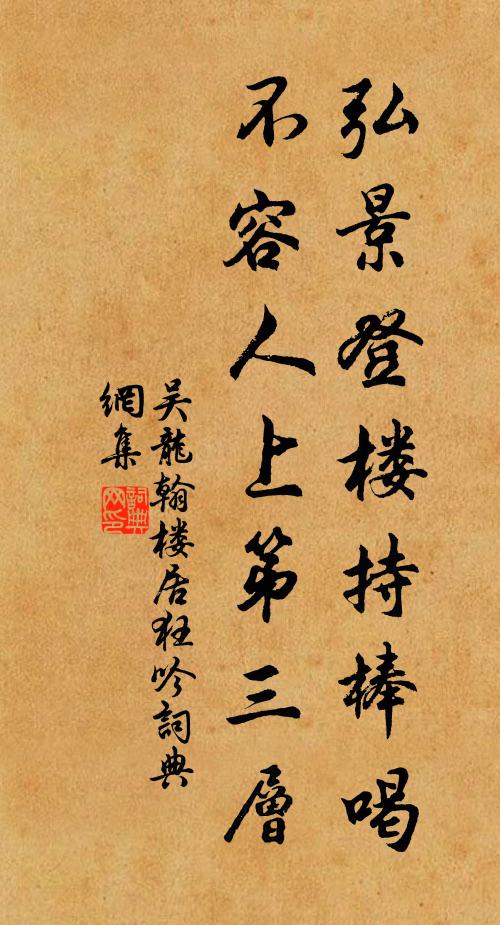 弘景登楼持棒喝
不容人上第三層
吴龍翰楼居狂吟詞典
網集
詞典
网印